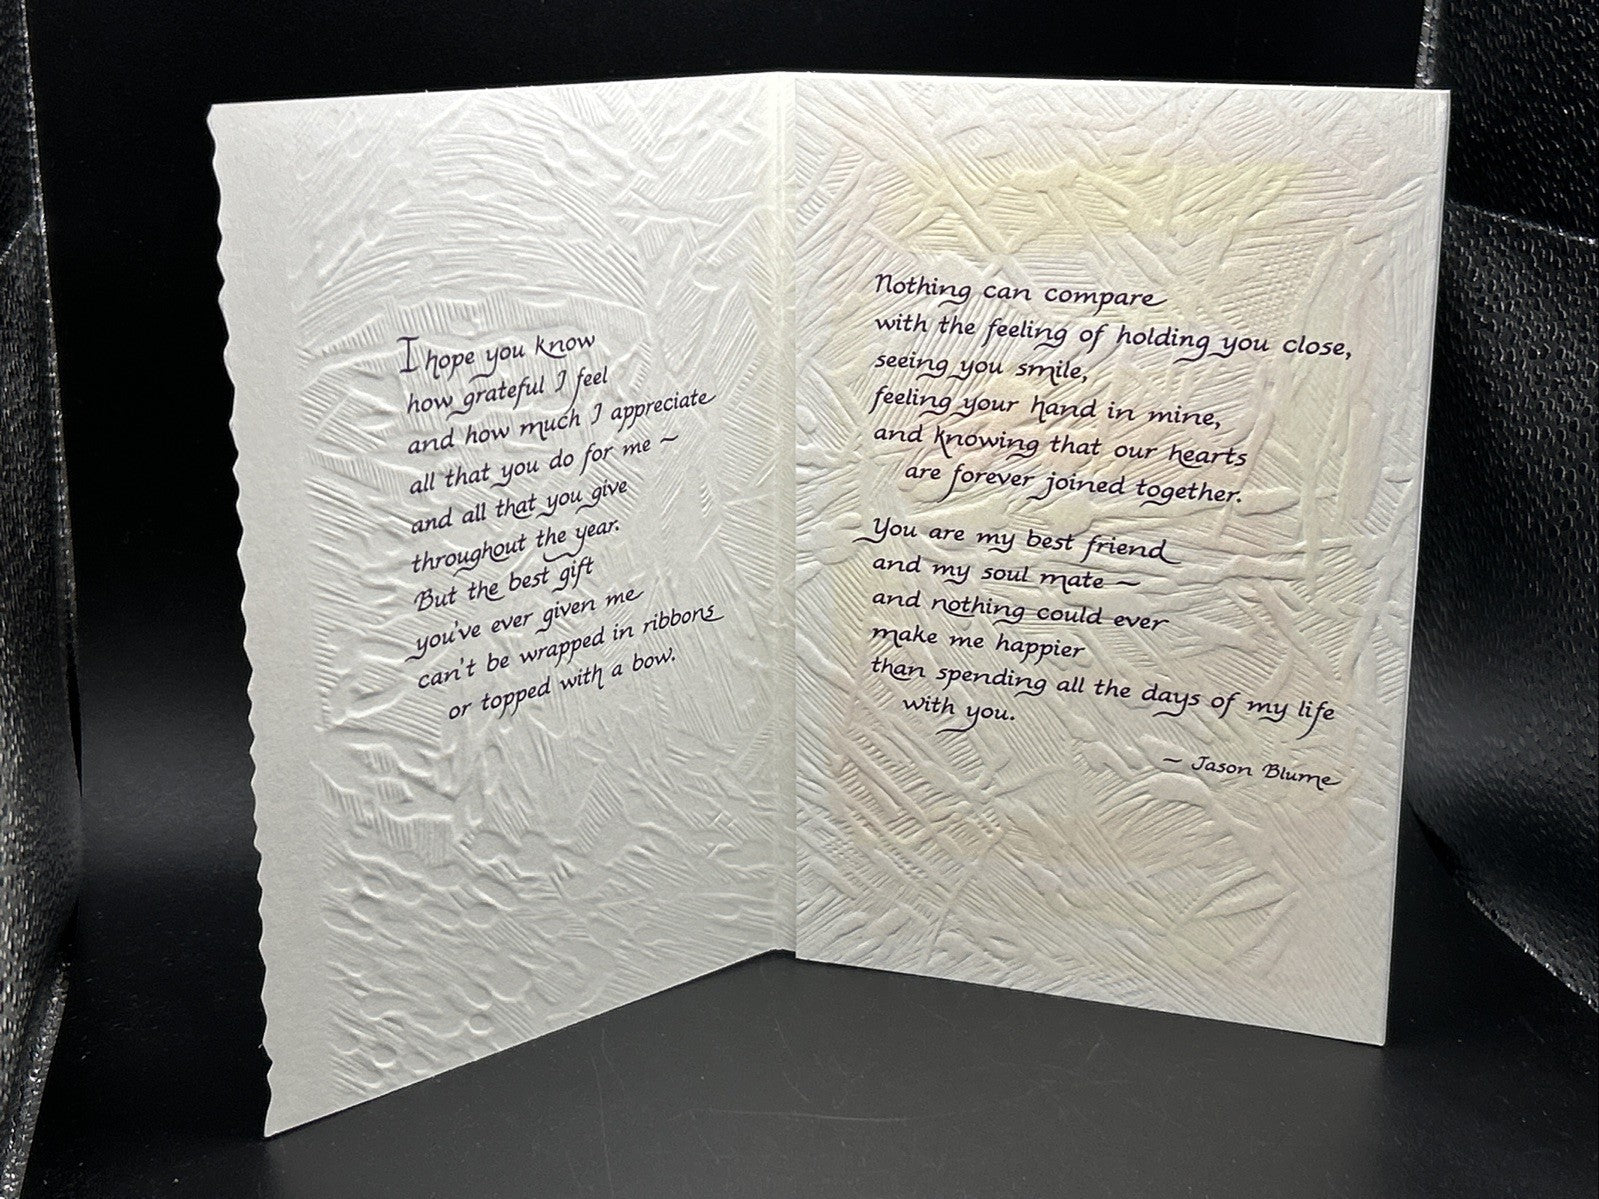 I hope you know
how grateful I feel
and how much I appreciate
all that you do for me ~
and all that you give
throughout the year.
But the best gift
you've ever given me
can't be wrapped in ribbons
or topped with a bow.
Nothing can compare
with the feeling of holding you close,
seeing you smile,
feeling your hand in mine,
and knowing that our hearts
are forever joined together.
You are my best friend
and my soul mate ~
and nothing could ever
make me happier
than spending all the days of my life
with you.
~ Jason Blume